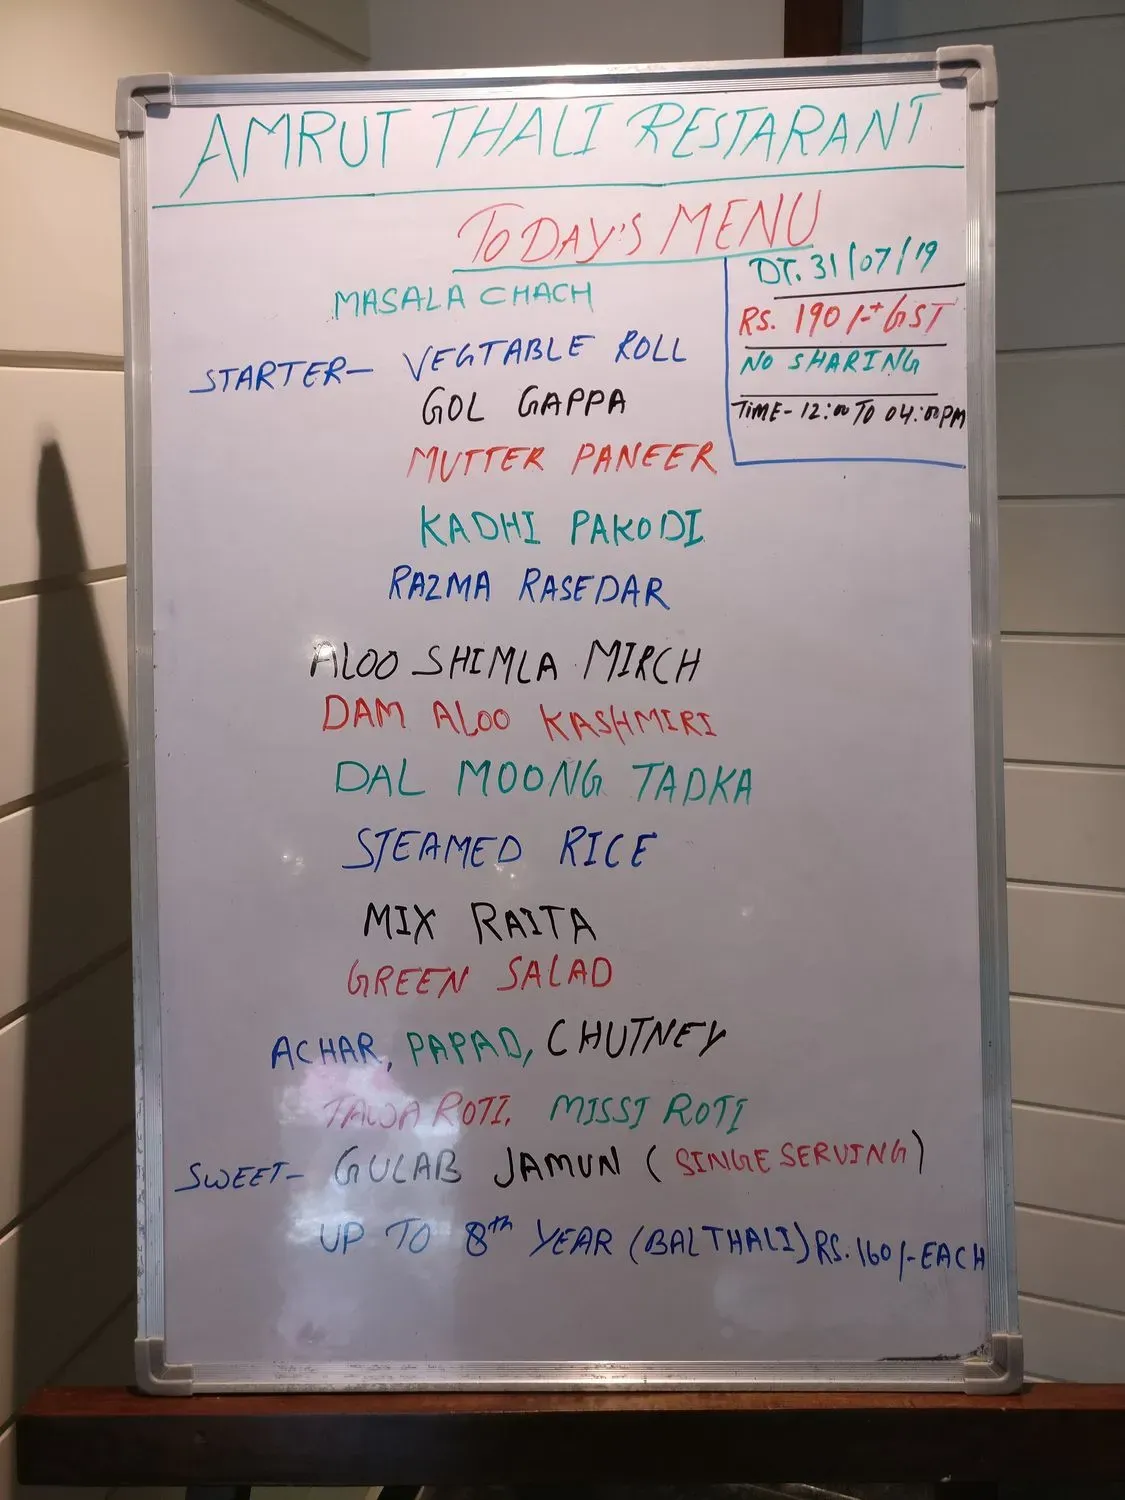 AMRUT THALI RESTARANT
TODAY'S MENU
DT. 31/07/19
RS. 190/-+GST
NO SHARING
TIME - 12:00 TO 04:00PM
MASALA CHACH
STARTER - VEGTABLE ROLL
GOL GAPPA
MUTTER PANEER
KADHI PAKODI
RAZMA RASEDAR
ALOO SHIMLA MIRCH
DAM ALOO KASHMIRI
DAL MOONG TADKA
STEAMED RICE
MIX RAITA
GREEN SALAD
ACHAR, PAPAD, CHUTNEY
TAWA ROTI, MISSI ROTI
SWEET - GULAB JAMUN (SINGE SERVING)
UP TO 8th YEAR (BAL THALI) RS. 160/- EACH